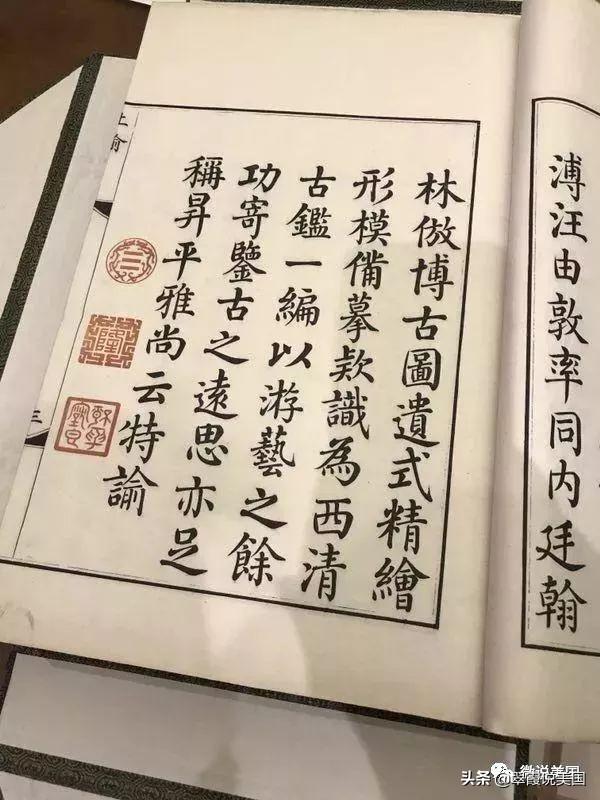 溥汪由敦率同内廷翰
林倣博古圖遺式精繪
形模備摹欵識為西清
古鑑一編以游藝之餘
功寄鑒古之遠思亦足
稱昇平雅尚云特諭
上諭
三
微说美国
头条@翠霞说美国